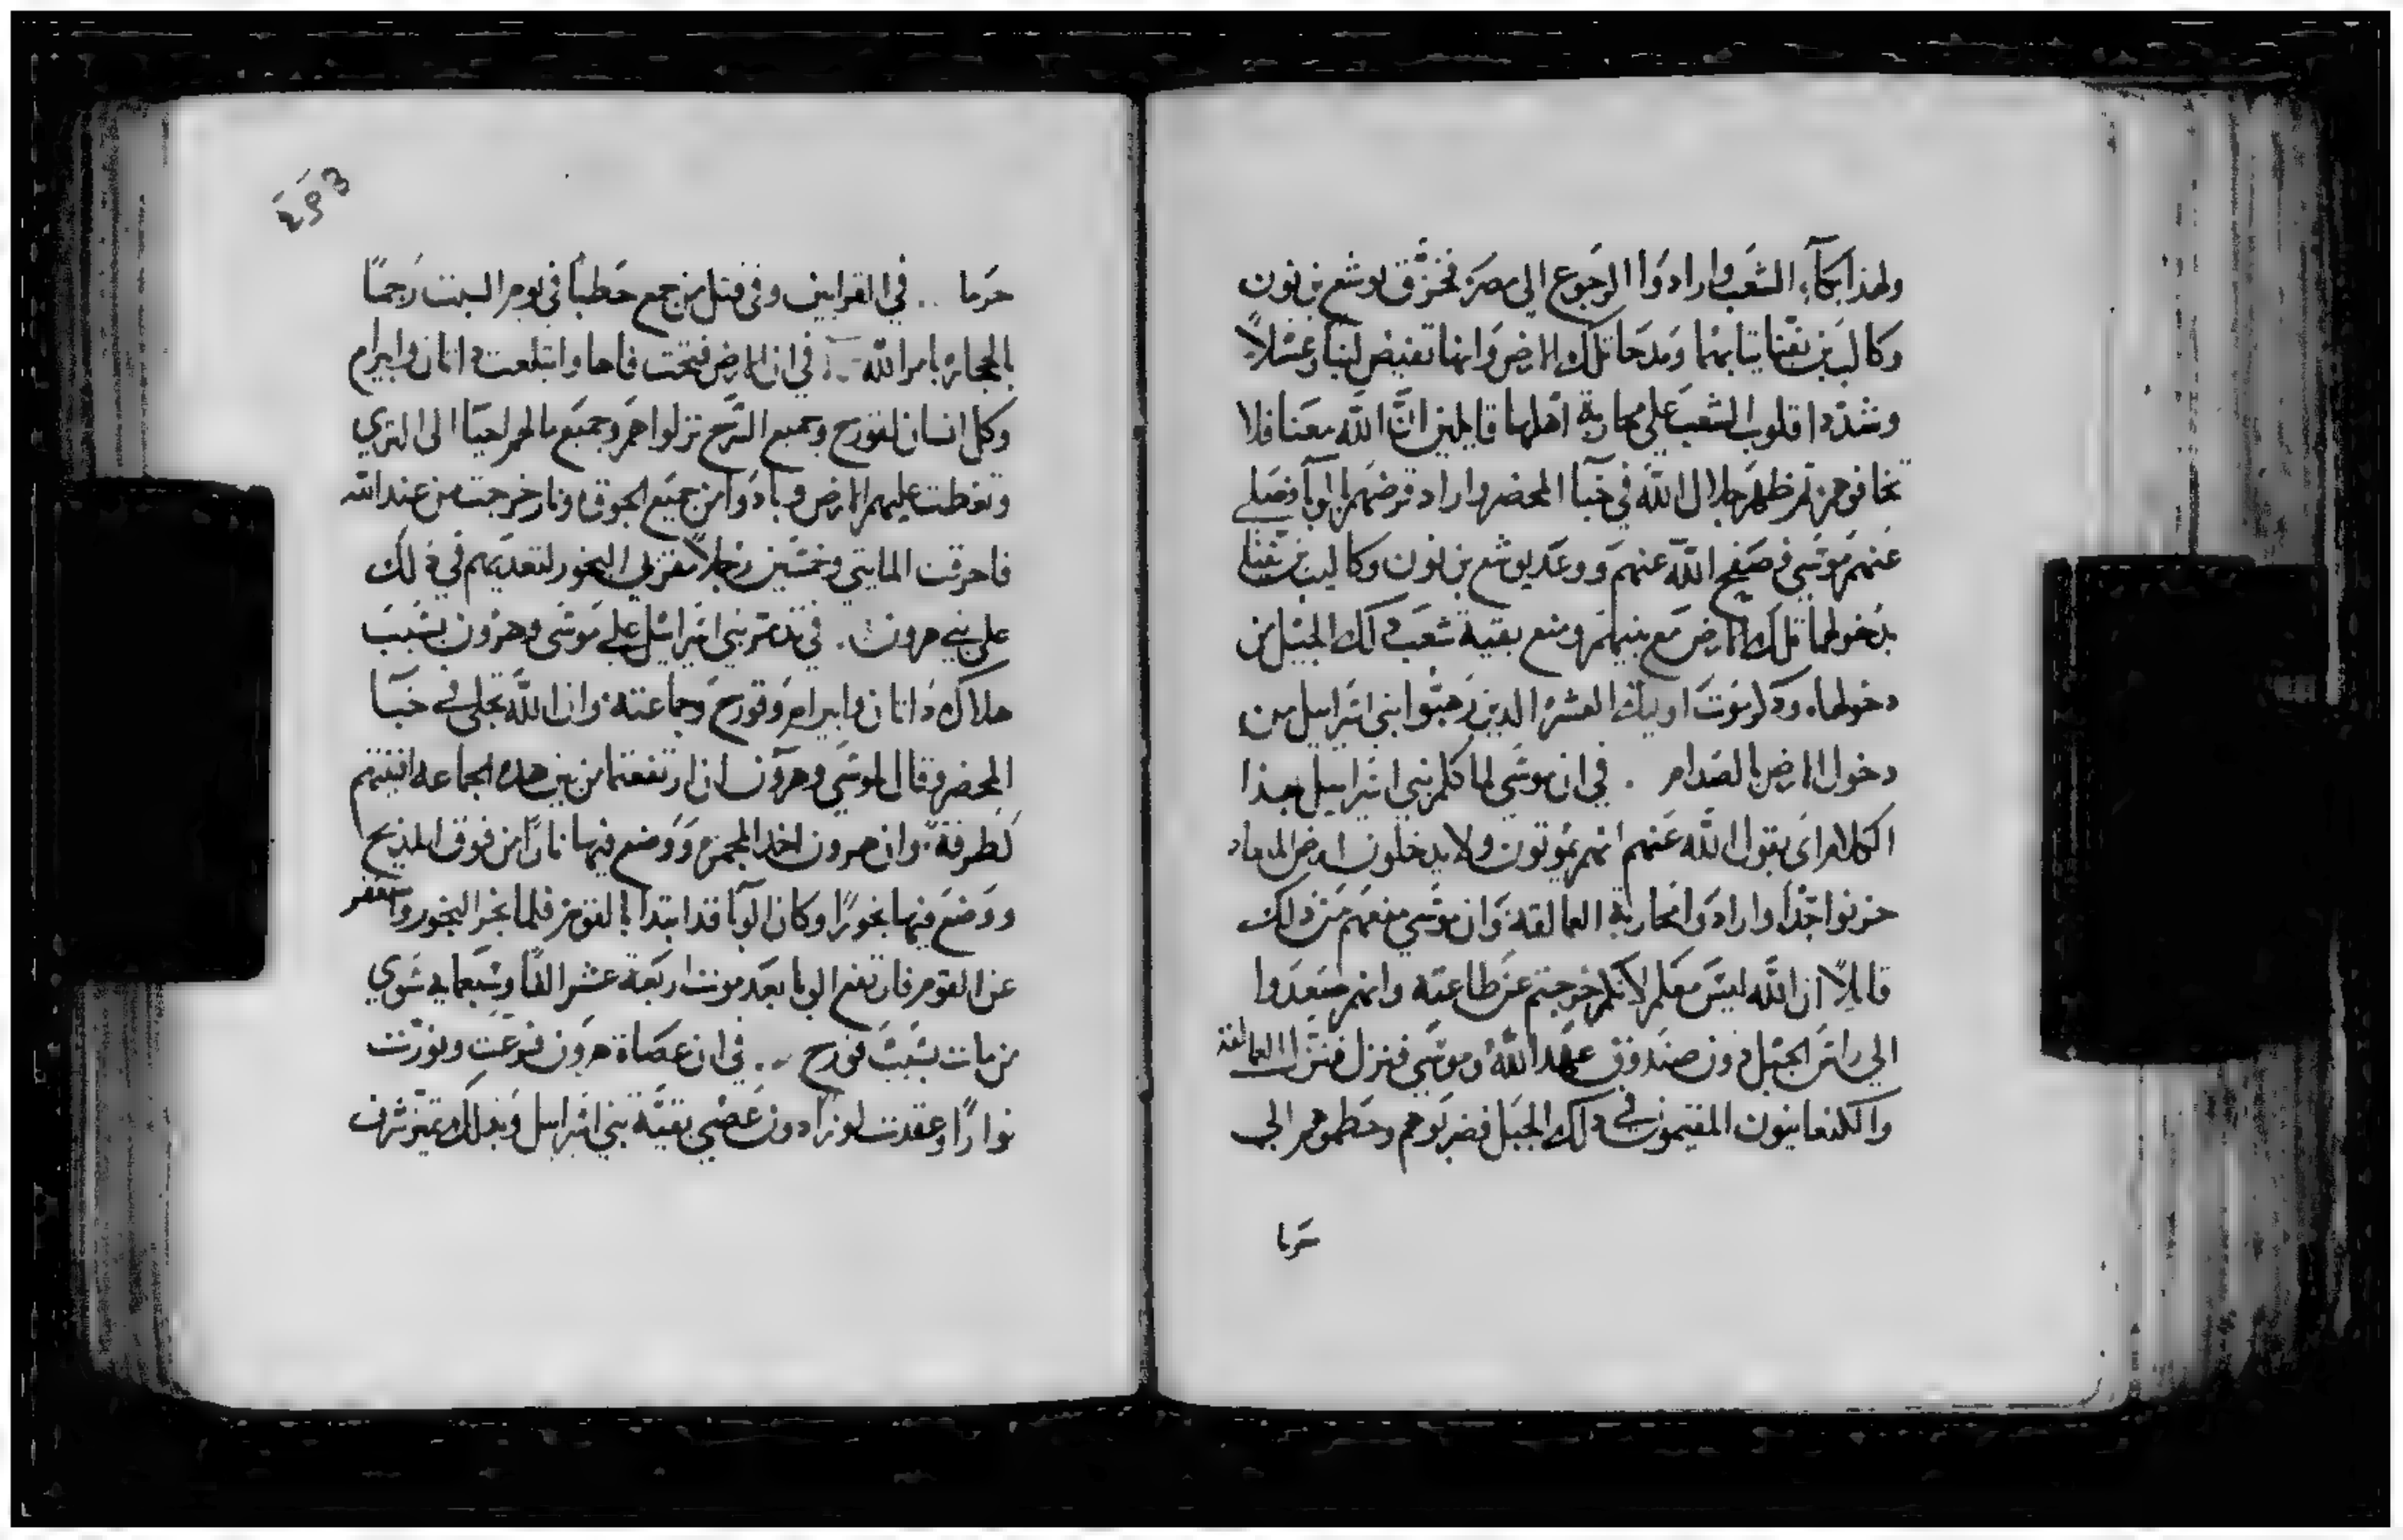 ولهذا بكآء الشعب وارادوا الرجوع الى مصر فخزق يوشع بن نون
وكالب بن يفنا ثيابهما ومدحا تلك الارض وانها تفيض لبنا وعسلاً
وشددا قلوب الشعب على محاربة اهلها قايلين ان الله معنا فلا
تخافوهم ثم ظهر جلال الله في خبا المحضر واراد قرضهم بالوبآ فصلى
عنهم موسى فصفح الله عنهم ووعد يوشع بن نون وكاليب بن يفنا
بدخولهما تلك الارض مع بنيهم ومنع بقية شعب ذلك الجيل من
دخولها وذكر موت اوليك العشرة الدين رهبوا بني اسراييل من
دخول الارض بالصدام . في ان موسى لما كلم بني اسراييل بهذا
الكلام اى بقول الله عنهم انهم يموتون ولا يدخلون ارض الميعاد
حزنوا جدًا وارادوا محاربة العمالقة وان موسى منعهم من ذلك
قايلاً ان الله ليس معكم لانكم خرجتم عن طاعته وانهم صعدوا
الى راس الجبل دون صندوق عهد الله وموسى فنزل العمالقة
والكنعانيون المقيمون في ذلك الجبل فضربوهم وحطموهم الى
حرما
293
حرما .. في القرابين وفي قتل من جمع حطبًا في يوم السبت رجمًا
بالحجارة بامر الله .. في ان الارض فتحت فاها وابتلعت داتان وابيرام
وكل انسان لقورح وجميع السرح نزلوا هم وجميع مالهم احيآ الى الثرى
وتغطت عليهم الارض وبادوا من جميع الجوق ونار خرجت من عند الله
فاحرقت المايتي وخمسين رجلاً مقربي البخور لتعديهم في ذلك
على بني هرون . في تذمر بني اسراييل على موسى وهرون بسبب
هلاك داتان وابيرام وقورح وجماعته وان الله تجلى في خبآ
المحضر وقال لموسى وهرون ان ارتفعتما من بين هذه الجماعه افنيتهم
كطرفة وان هرون اخذ المجمرة ووضع فيها نارًا من فوق المذبح
ووضع فيها بخورًا وكان الوبآ قد ابتدا بالقوم فلما بخر البخور واستغفر
عن القوم فارتفع الوبا بعد موت اربعة عشر الفًا وسبعمايه سوى
من مات بسبب قورح .. في ان عصاة هرون فرعت ونورت
نوارًا وعقدت لوزًا دون عصي بقية بني اسراييل وبذلك تميز شرف